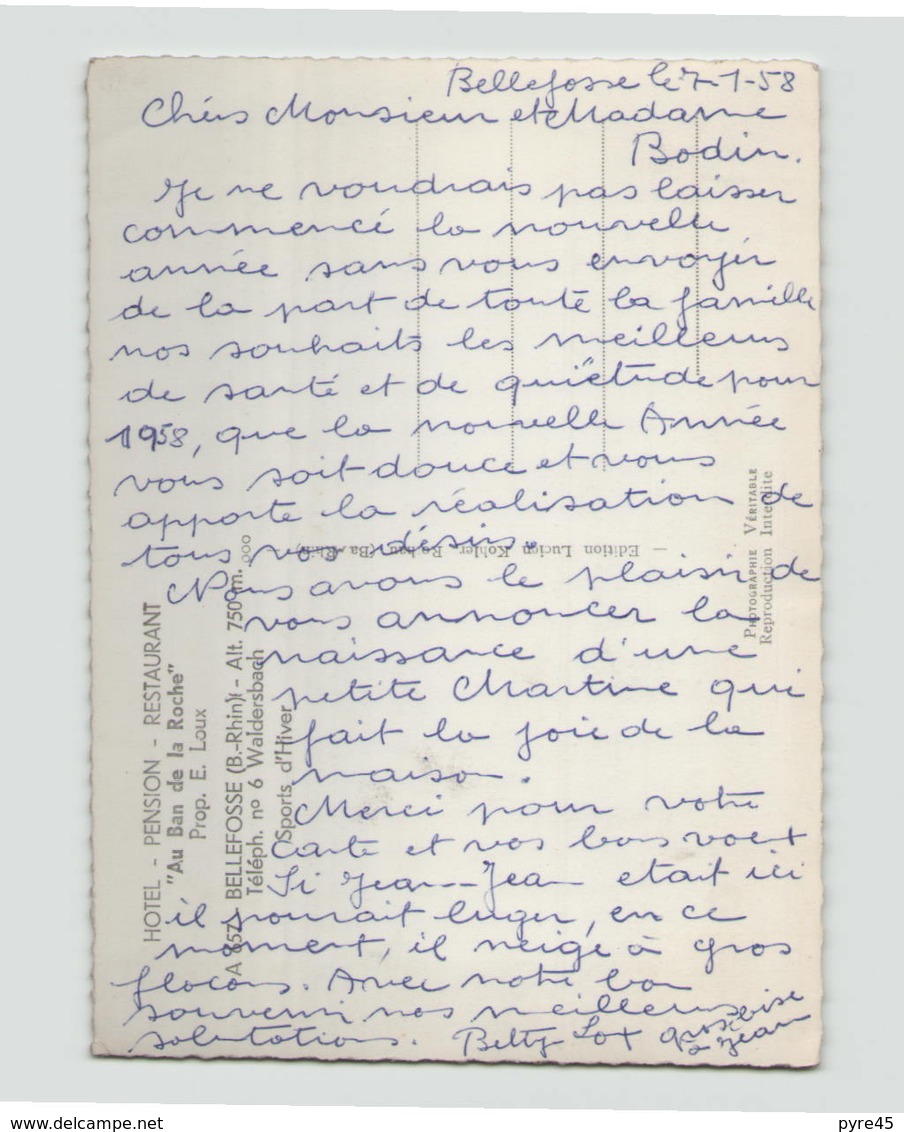 Bellefosse le 7-1-58
Chérs Monsieur et Madame
Bodin.
Je ne voudrais pas laisser
commencé la nouvelle
année sans vous envoyér
de la part de toute la famille
nos souhaits les meilleurs
de santé et de quiétude pour
1958, que la nouvelle Année
vous soit douce et vous
apporte la réalisation de
tous vos désirs.
Nous avons le plaisir de
vous annoncer la
naissance d'une
petite Martine qui
fait la joie de la
maison.
Merci pour votre
carte et vos bons voeux
Si Jean-Jean etait ici
il pourait luger, en ce
moment, il neige à gros
flocons. Avec notre bon
souvenir nos meilleures
salutations. Betty
grosse bise
a Jean
HOTEL - PENSION - RESTAURANT
"Au Ban de la Roche"
Prop. E. Loux
BELLEFOSSE (B.-Rhin) - Alt. 750 m.
Téléph. nº 6 Waldersbach
Sports d'Hiver
— Edition Lucien Kohler, Rothau (Bas-Rhin)
PHOTOGRAPHIE VÉRITABLE
Reproduction Interdite
delcampe.net
pyre45